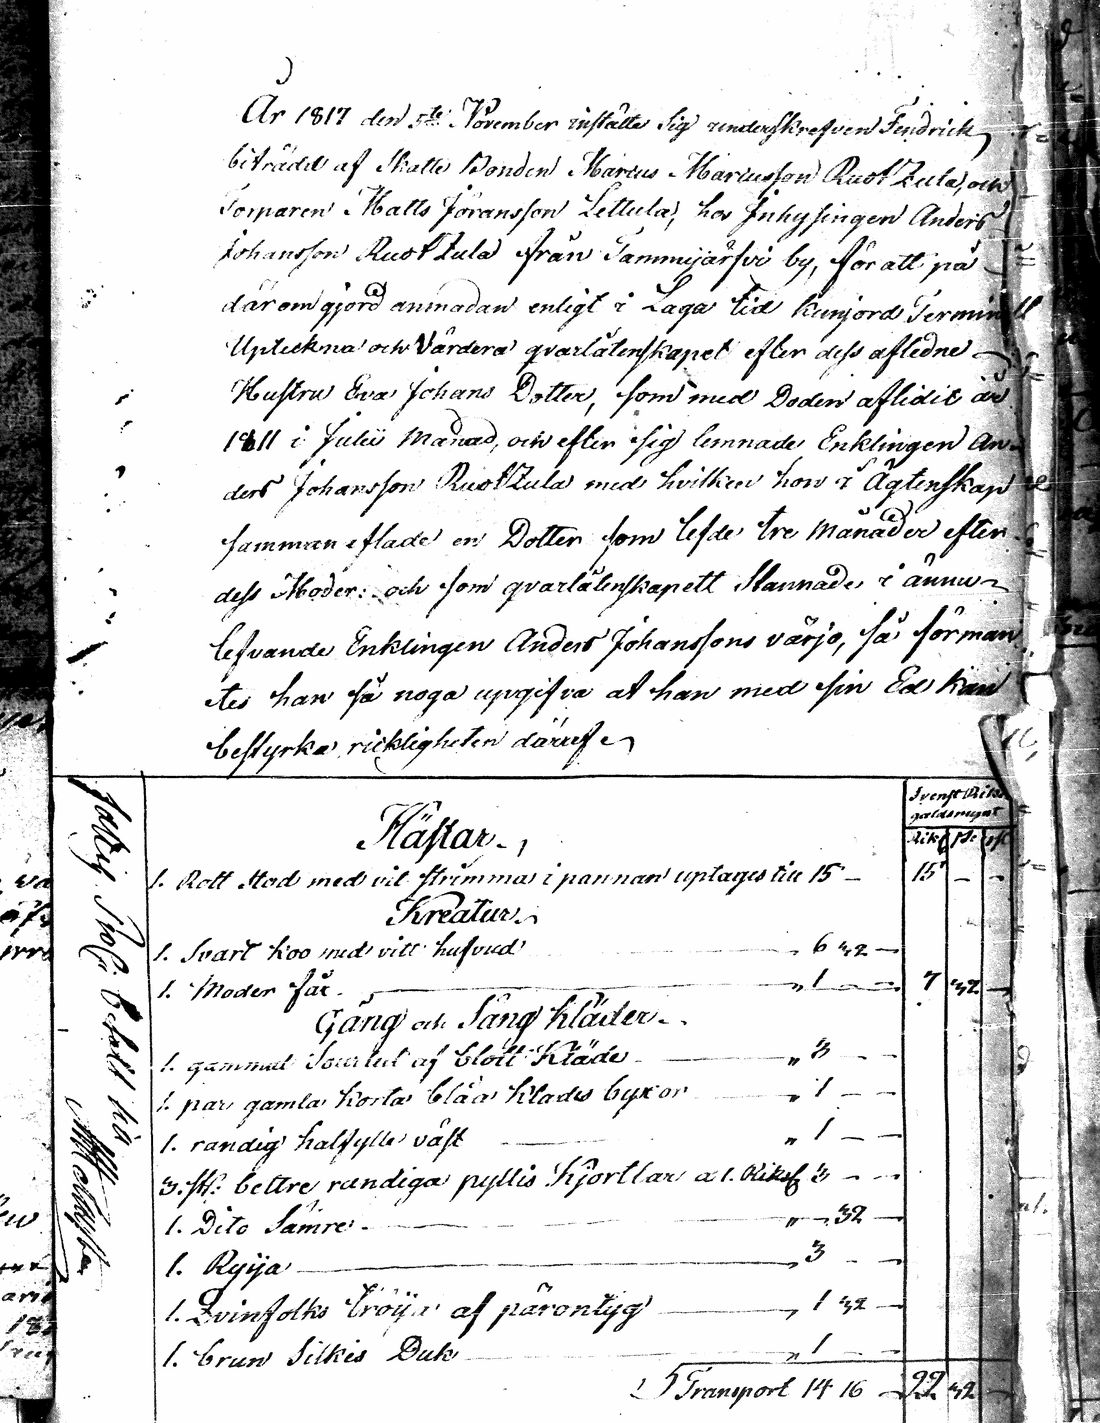 År 1817 den 5te November instälte sig underskrefven Fendrick,
biträdd af Skatte Bonden Marcus Marcusson RuotZula, och
Tornaren Matts Jöransson Lettula, hos Inhysingen Anders
Johansson RuotZula från Tammijärfvi by, för att på
därom gjord anmadan enligt i Laga tid kunjord Termin
Upteckna och Värdera qvarlåtenskapet efter dess afledne
Hustru Eva Johans Dotter, som med Döden aflidit år
1811 i Julii Månad, och efter sig lemnade Enklingen An-
ders Johansson RuotZula med hvilken hon i Ägtenskap
samman aflade en Dotter som lefde tre Månader efter
dess Moder: och som qvarlåtenskapett Stannade i ännu
lefvande Enklingen Anders Johanssons värjo, så förman
tes han så noga upgifva at han med sin Ed kan
bestyrka rickligheten däraf.
Svenst Riks
galdsmynt
Riks sk: rst
Hästar.
1. Rott Stod med vit strimma i pannan uptages till 15 — 15 — —
Kreatur.
1. Svart Koo med vitt hufvud 6 32 —
1. Moder får „ 1 — — 7 32 —
Gång och Säng Kläder.
1. gammal Sourtut af blått Kläde „ 3 — —
1. par gamla korta blåa klädes byxor „ 1 — —
1. randig halfylle väst „ 1 — —
3. st: bettre randiga pyllis Kjortlar a 1. Riks 3 — —
1. Dito Sämre „ — 32 —
1. Ryija „ 3 — —
1. Qvinfolks tröija af pärontyg „ 1 32 —
1. brun Silkes Duk „ 1 — —
Transport 14 16 — 22 32 —